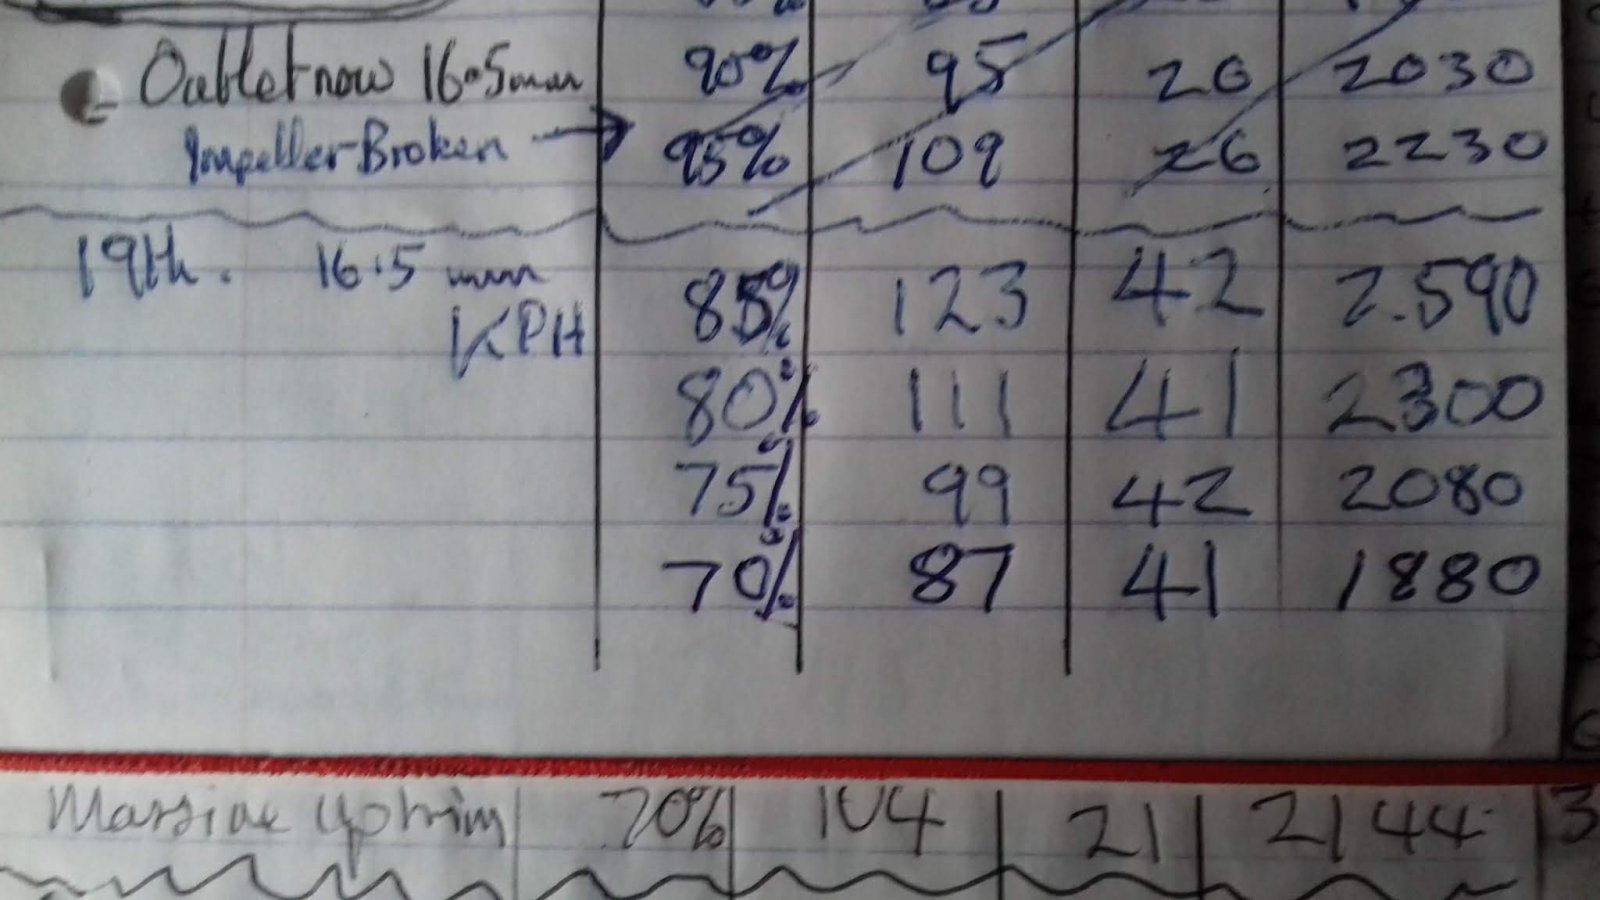 Outlet now 16.5mm 90% 95 26 2030
Impeller Broken → 95% 109 26 2230
19th. 16.5 mm 85% 123 42 2.590
KPH
80% 111 41 2300
75% 99 42 2080
70% 87 41 1880
Massive uptrim 70% 104 21 2144 3